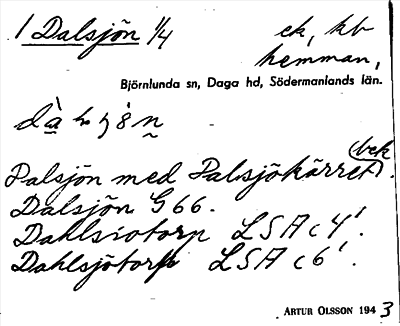 1 Dalsjön 1/4 ek, kb
hemman,
Björnlunda sn, Daga hd, Södermanlands län.
bek
Dalsjön med Dalsjökärret.
Dalsjön G66.
Dahlsiotorp LSA c4'.
Dahlsjötorp LSA c6'.
ARTUR OLSSON 1943